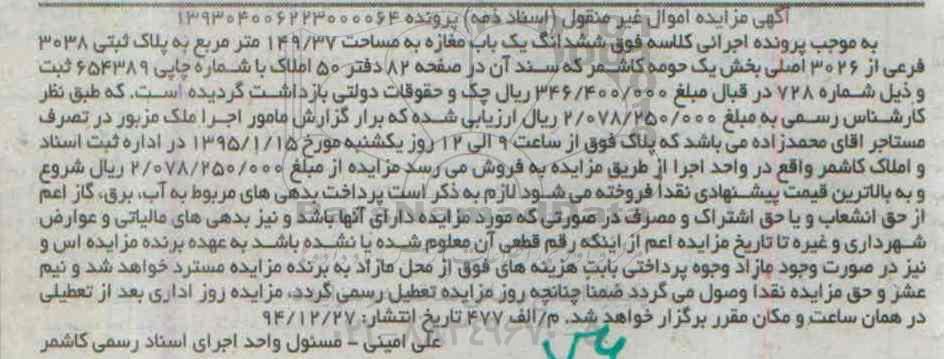 آگهی مزایده اموال غیر منقول (اسناد ذمه) پرونده ۱۳۹۳۰۴۰۰۶۲۲۳۰۰۰۰۶۴
به موجب پرونده اجرائی کلاسه فوق ششدانگ یک باب مغازه به مساحت ۱۴۹/۳۷ متر مربع به پلاک ثبتی ۳۰۳۸
فرعی از ۳۰۲۶ اصلی بخش یک حومه کاشمر که سند آن در صفحه ۸۲ دفتر ۵۰ املاک با شماره چاپی ۶۵۴۳۸۹ ثبت
و ذیل شماره ۷۲۸ در قبال مبلغ ۳۴۶/۴۰۰/۰۰۰ ریال چک و حقوقات دولتی بازداشت گردیده است. که طبق نظر
کارشناس رسمی به مبلغ ۲/۰۷۸/۲۵۰/۰۰۰ ریال ارزیابی شده که برار گزارش مامور اجرا ملک مزبور در تصرف
مستاجر اقای محمدزاده می باشد که پلاک فوق از ساعت ۹ الی ۱۲ روز یکشنبه مورخ ۱۳۹۵/۱/۱۵ در اداره ثبت اسناد
و املاک کاشمر واقع در واحد اجرا از طریق مزایده به فروش می رسد مزایده از مبلغ ۲/۰۷۸/۲۵۰/۰۰۰ ریال شروع
و به بالاترین قیمت پیشنهادی نقدا فروخته می شود لازم به ذکر است پرداخت بدهی های مربوط به آب، برق، گاز اعم
از حق انشعاب و یا حق اشتراک و مصرف در صورتی که مورد مزایده دارای آنها باشد و نیز بدهی های مالیاتی و عوارض
شهرداری و غیره تا تاریخ مزایده اعم از اینکه رقم قطعی آن معلوم شده یا نشده باشد به عهده برنده مزایده اس و
نیز در صورت وجود مازاد وجوه پرداختی بابت هزینه های فوق از محل مازاد به برنده مزایده مسترد خواهد شد و نیم
عشر و حق مزایده نقدا وصول می گردد ضمنا چنانچه روز مزایده تعطیل رسمی گردد، مزایده روز اداری بعد از تعطیلی
در همان ساعت و مکان مقرر برگزار خواهد شد. م/الف ۴۷۷ تاریخ انتشار: ۹۴/۱۲/۲۷
علی امینی - مسئول واحد اجرای اسناد رسمی کاشمر